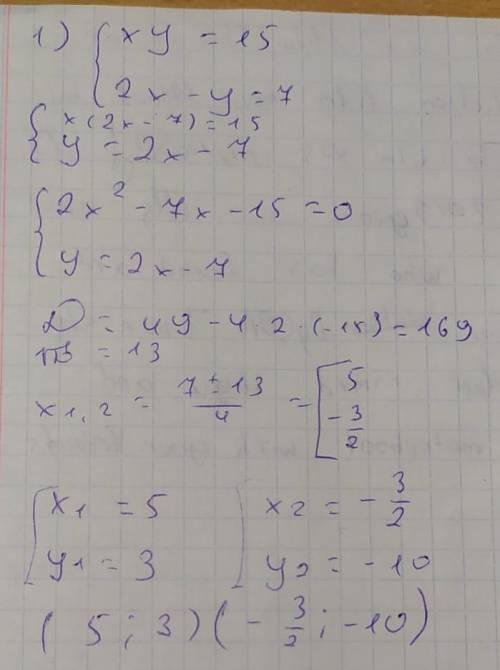 1) { xy = 15
2x - y = 7
{ x(2x - 7) = 15
y = 2x - 7
{ 2x² - 7x - 15 = 0
y = 2x - 7
D = 49 - 4 2 · (-15) = 169
√D = 13
x1,2 = (7 ± 13)/4 = [ 5
-3/2
{ x1 = 5 { x2 = -3/2
y1 = 3 y2 = -10
(5; 3) (-3/2; -10)